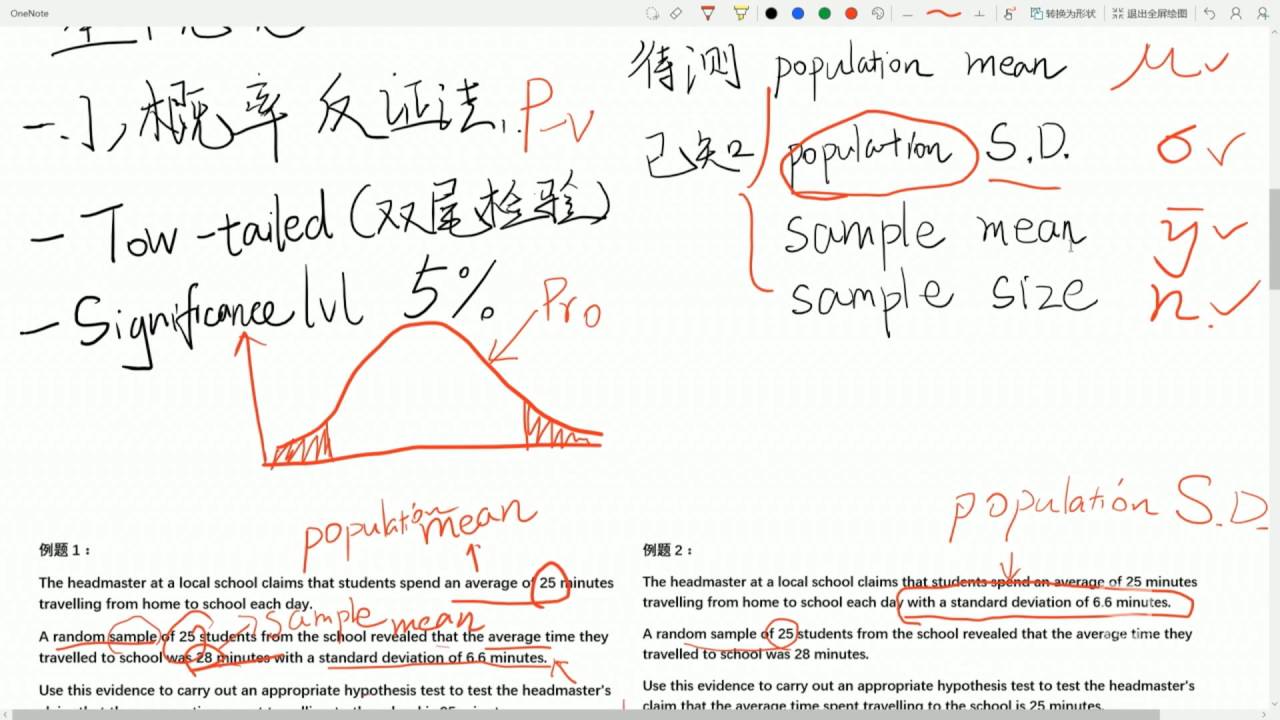 OneNote
转换为形状
退出全屏绘图
一小概率反证法. P-v
- Tow-tailed (双尾检验)
- Significance lvl 5%
Pro
待测 population mean μ
已知 population S.D. σ
sample mean ȳ
sample size n
population mean
例题 1：
The headmaster at a local school claims that students spend an average of 25 minutes
travelling from home to school each day.
sample mean
A random sample of 25 students from the school revealed that the average time they
travelled to school was 28 minutes with a standard deviation of 6.6 minutes.
Use this evidence to carry out an appropriate hypothesis test to test the headmaster's
population S.D.
例题 2：
The headmaster at a local school claims that students spend an average of 25 minutes
travelling from home to school each day with a standard deviation of 6.6 minutes.
A random sample of 25 students from the school revealed that the average time they
travelled to school was 28 minutes.
Use this evidence to carry out an appropriate hypothesis test to test the headmaster's
claim that the average time spent travelling to the school is 25 minutes.